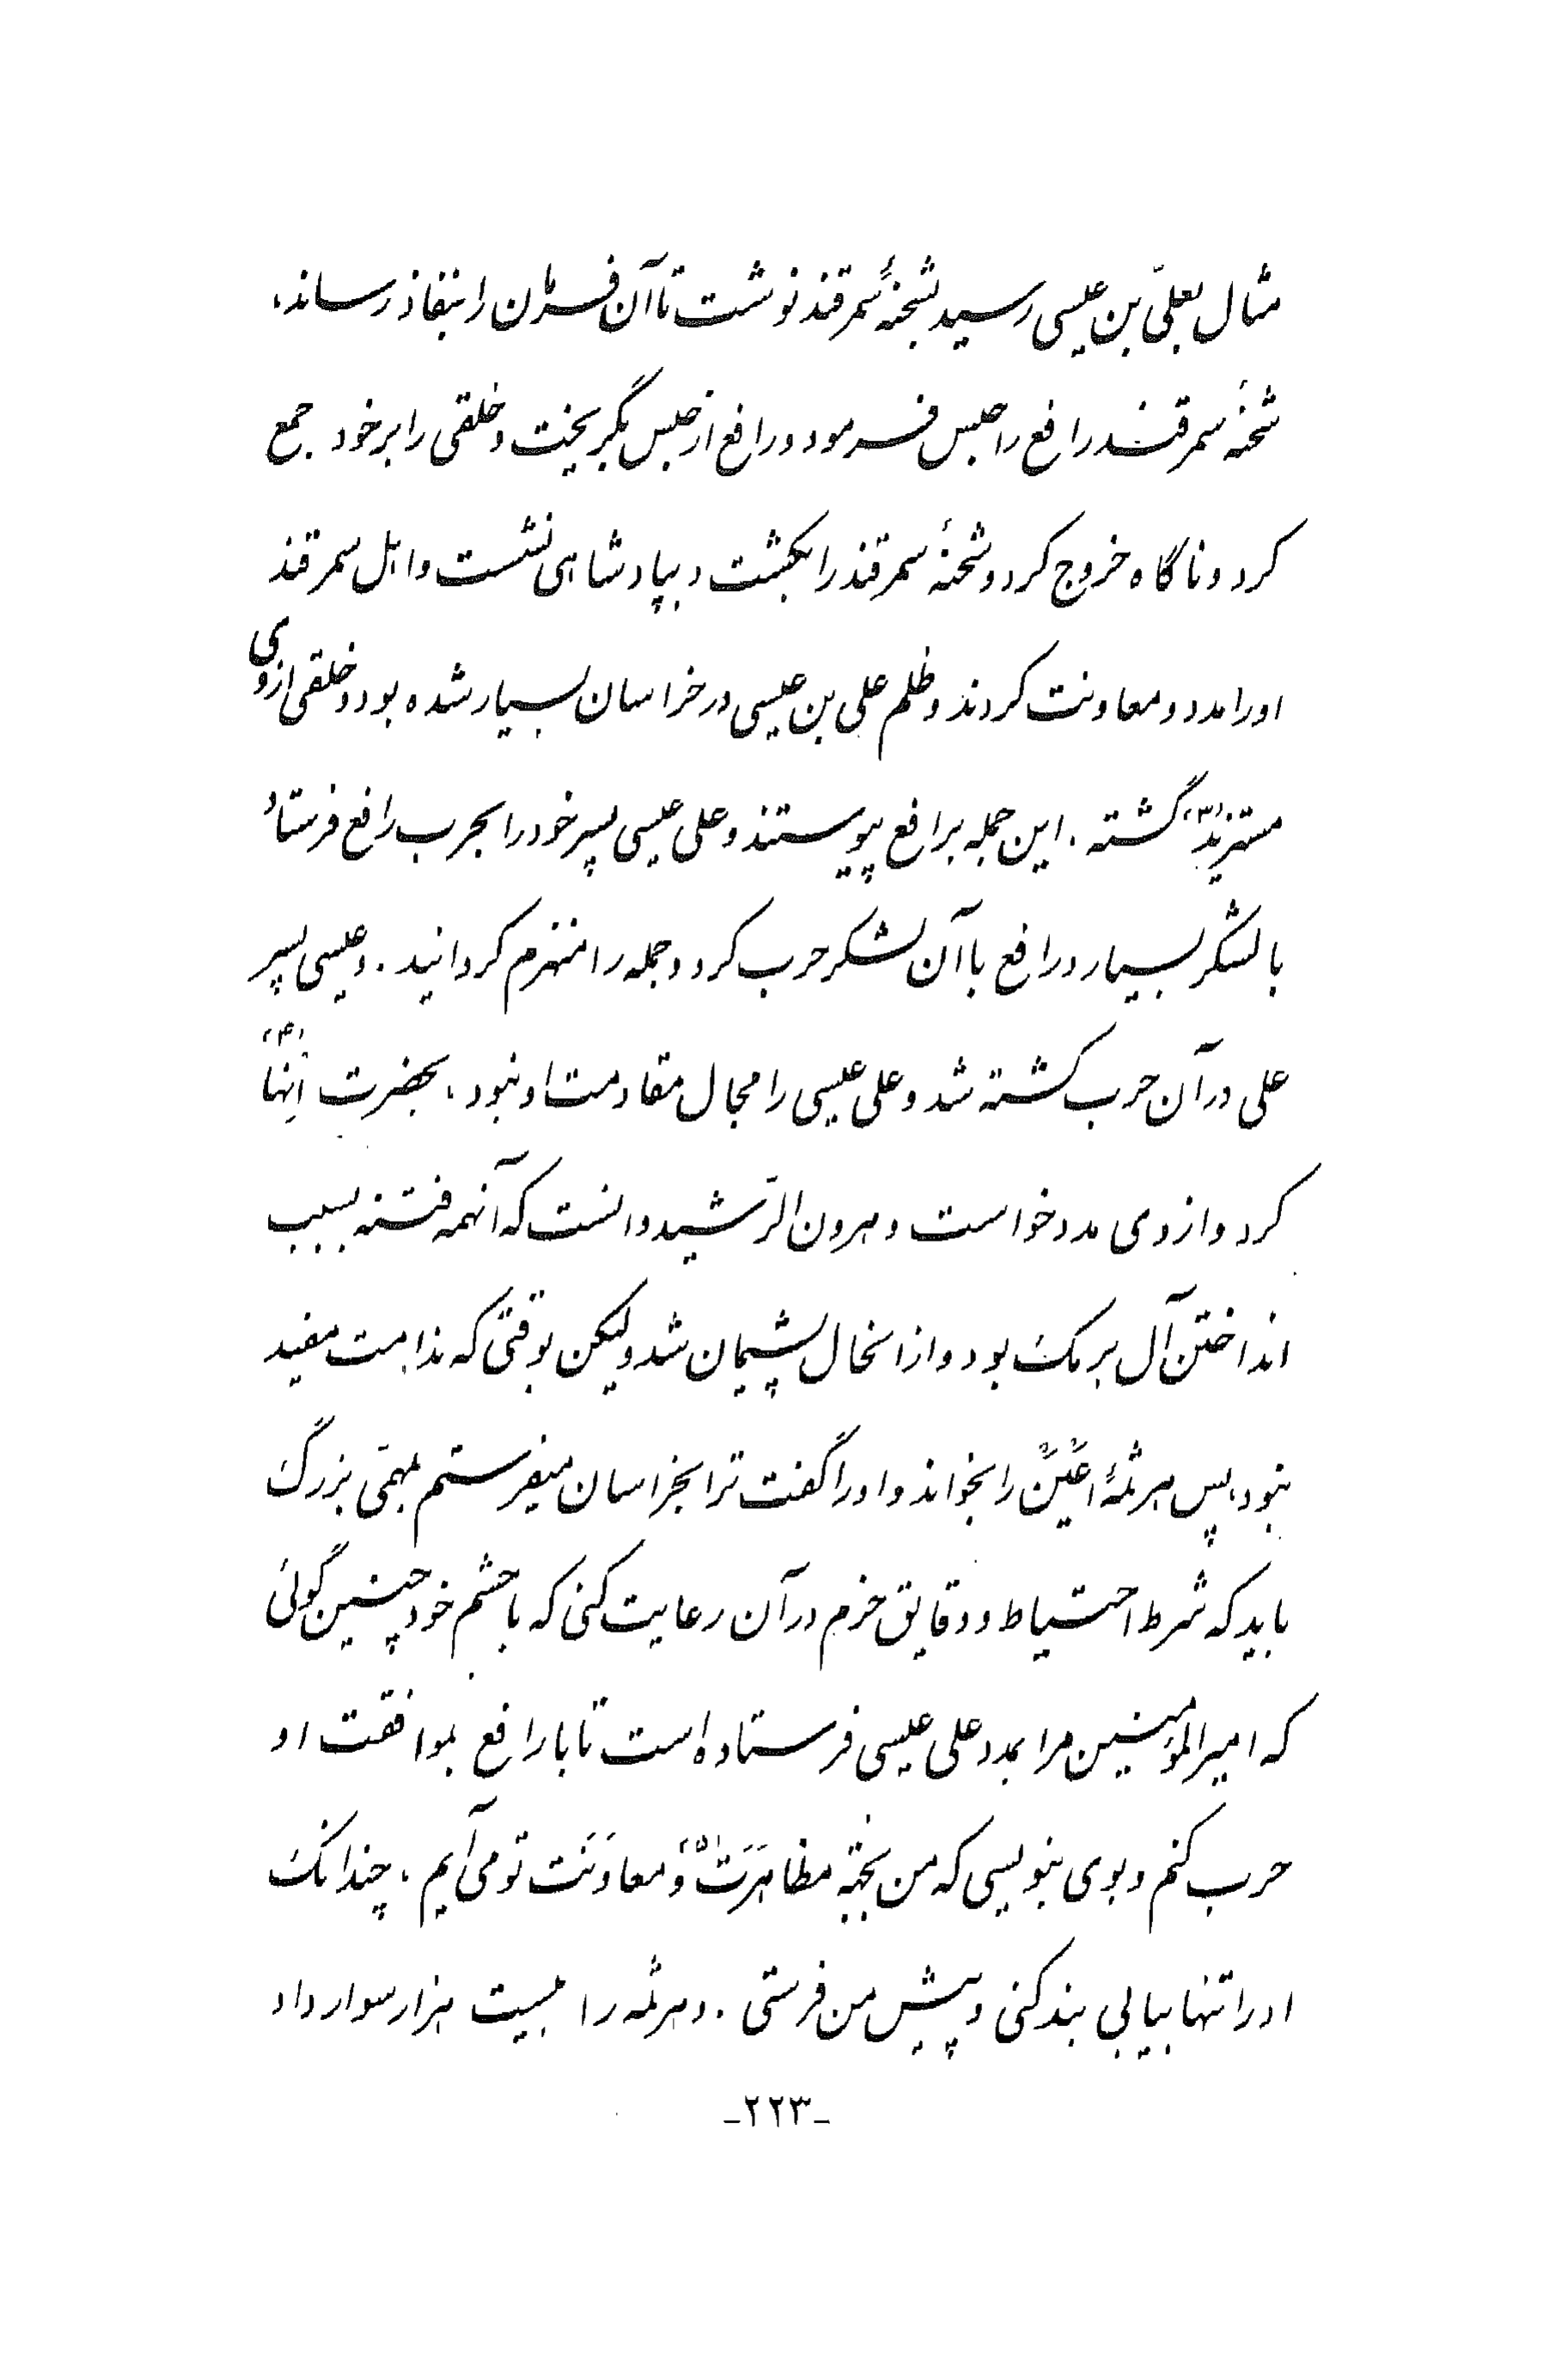 مثال بعلیّ بن عیسی رسید بشحنهٔ سمرقند نوشت تا آن فرمان را بنفاذ رساند،
شحنهٔ سمرقند رافع را حبس فرمود و رافع از حبس بگریخت و خلقی را بر خود جمع
کرد و ناگاه خروج کرد و شحنهٔ سمرقند را بکشت و بپادشاهی نشست و اهل سمرقند
او را مدد و معاونت کردند و ظلم علی بن عیسی در خراسان بسیار شده بود و خلقی از وی
مستزید«۳» گشته. این جمله برافع پیوستند و علی عیسی پسر خود را بحرب رافع فرستاد
با لشکر بسیار و رافع با آن لشکر حرب کرد و جمله را منهزم گردانید. و عیسی پسر
علی در آن حرب کشته شد و علی عیسی را مجال مقاومت او نبود، بحضرت اِنها«۴»
کرد و از وی مدد خواست و هرون الرّشید دانست که آنهمه فتنه بسبب
انداختن آل برمک بود و از انحال پشیمان شد ولیکن بوقتی که ندامت مفید
نبود، پس هرثمهٔ اَعْیَنْ را بخواند و او را گفت ترا بخراسان میفرستم بمهمّی بزرگ
باید که شرط احتیاط و دقایق حزم در آن رعایت کنی که با حشم خود چنین گوئی
که امیرالمؤمنین مرا بمدد علی عیسی فرستاده است تا با رافع بموافقت او
حرب کنم و بوی بنویسی که من بجهة مظاهَرَت«۵» و معاوَنَت تو می‌آیم، چندانک
او را تنها بیابی بند کنی و پیش من فرستی. و هرثمه را بیست هزار سوار داد
-۲۲۳-